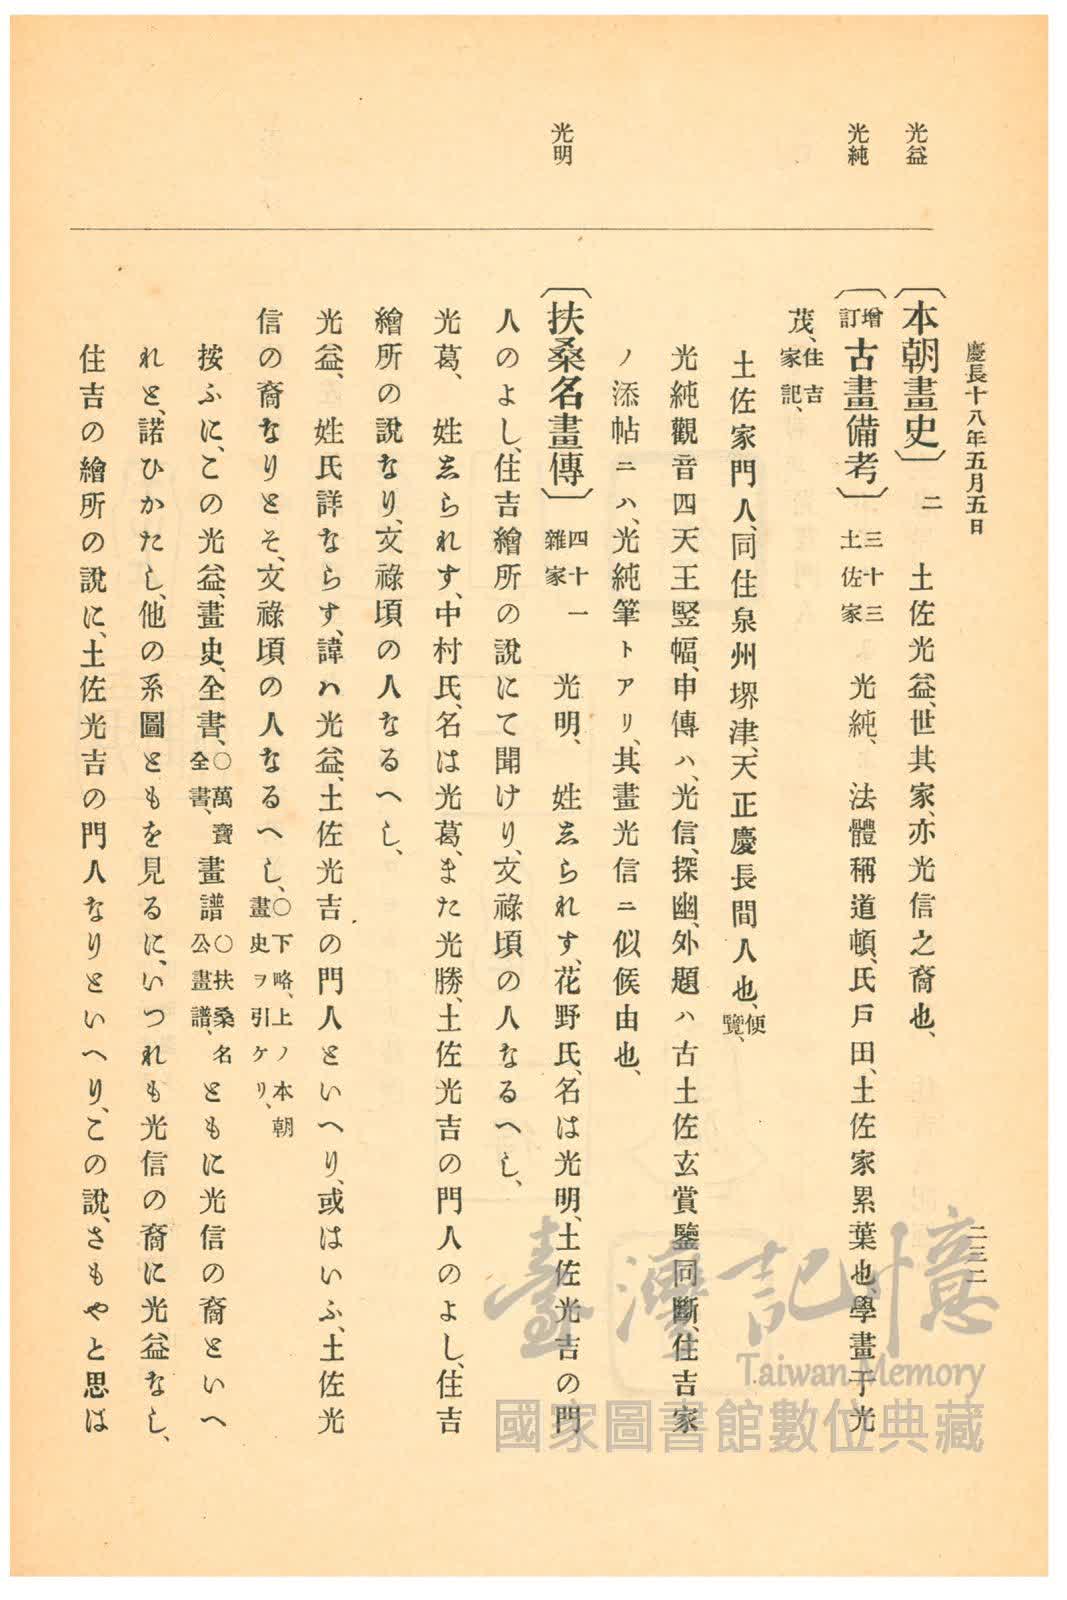 慶長十八年五月五日
二三二
光益
光純
光明
〔本朝畫史〕二 土佐光益、世其家、亦光信之裔也、
〔增訂古畫備考〕三十三 土佐家 光純、法體稱道頓、氏戸田、土佐家累葉也學畫于光
茂、住吉家記、
土佐家門人、同住泉州堺津、天正慶長間人也、便覽、
光純觀音四天王竪幅、申傳ハ、光信、探幽、外題ハ古土佐玄賞鑒同斷、住吉家
ノ添帖ニハ、光純筆トアリ、其畫光信ニ似候由也、
〔扶桑名畫傳〕四十一 雜家 光明、姓志られす、花野氏、名は光明、土佐光吉の門
人のよし、住吉繪所の說にて聞けり、文祿頃の人なるへし、
光葛、姓志られす、中村氏、名は光葛、また光勝、土佐光吉の門人のよし、住吉
繪所の說なり、文祿頃の人なるへし、
光益、姓氏詳ならす、諱ハ光益、土佐光吉の門人といへり、或はいふ、土佐光
信の裔なりとそ、文祿頃の人なるへし、〇下略、上ノ本朝畫史ヲ引ケリ、
按ふに、この光益、畫史、全書、〇萬寶全書、畫譜〇扶桑名公畫譜、ともに光信の裔といへ
れと、諾ひかたし、他の系圖ともを見るに、いつれも光信の裔に光益なし、
住吉の繪所の說に、土佐光吉の門人なりといへり、この說、さもやと思は
臺灣記憶
Taiwan Memory
國家圖書館數位典藏